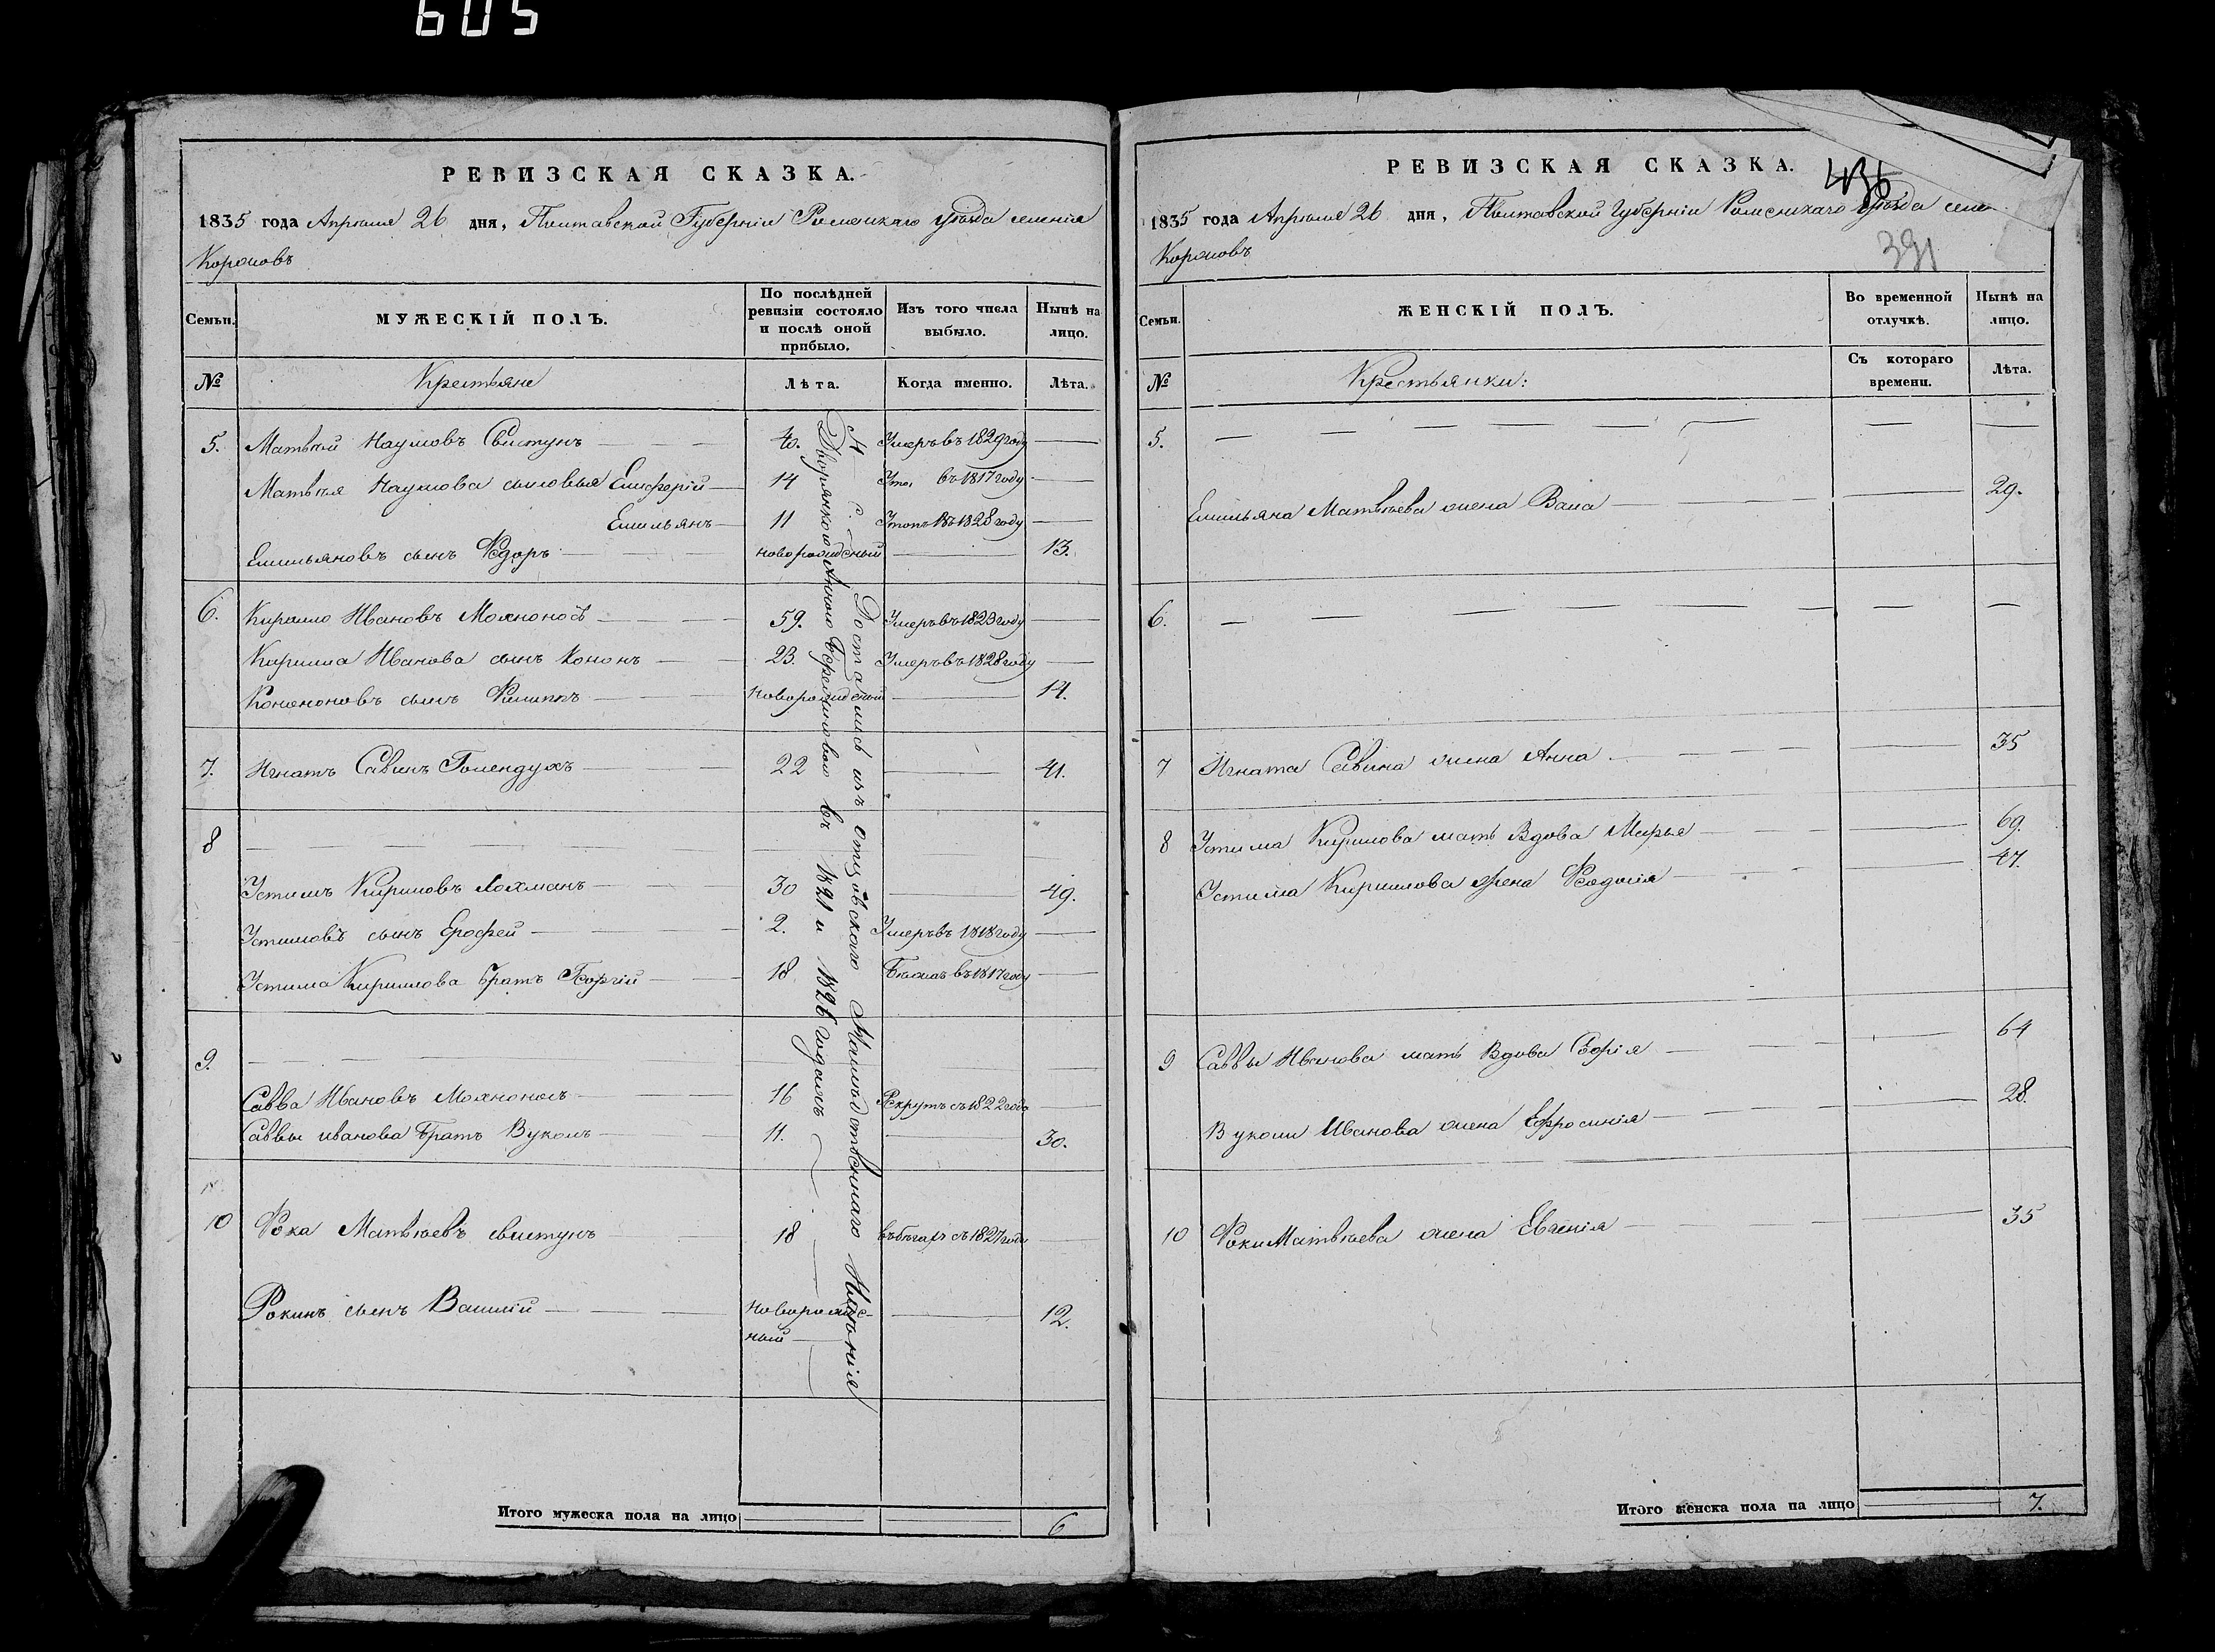 605
РЕВИЗСКАЯ СКАЗКА.
1835 года Апрѣля 26 дня, Полтавской Губерніи Роменскаго уѣзда селенія
Коржовъ
Семьи. МУЖЕСКІЙ ПОЛЪ. По послѣдней ревизіи состояло и послѣ оной прибыло. Изъ того числа выбыло. Нынѣ на лицо.
№ Крестьяне Лѣта. Когда именно. Лѣта.
5. Матвѣй Наумовъ Свистунъ 40. Умеръ въ 1829 году
Матвѣя Наумова сыновья Елиферій 14 Ум. въ 1817 году
Емельянъ 11 Утопъ въ 1828 году
Емельяновъ сынъ Ѳедоръ новорожденный 13.
6. Кирило Ивановъ Мохноносъ 59. Умеръ въ 1823 году
Кирилла Иванова сынъ Кононъ 23. Умеръ въ 1828 году
Кононовъ сынъ Филиппъ новорожденный 14.
7. Игнатъ Савинъ Голендухъ 22 41.
8
Устимъ Кириловъ Лохманъ 30 49.
Устимовъ сынъ Ерофей 2. Умеръ въ 1818 году
Устима Кирилова братъ Георгій 18 Бѣжалъ въ 1817 году
9.
Савва Ивановъ Мохноносъ 16 Рекрутъ съ 1822 года
Саввы Иванова братъ Вуколъ 11. 30.
10 Фока Матвѣевъ Свистунъ 18 въ бѣгахъ съ 1827 года
Фокинъ сынъ Василій новорожденный 12.
Достались изъ отцовскаго наслѣдственнаго имѣнія
Дворянкою Анною в 1821 и 1826 годахъ
Итого мужеска пола на лицо 6
РЕВИЗСКАЯ СКАЗКА.
436
1835 года Апрѣля 26 дня, Полтавской Губерніи Роменскаго уѣзда селе
Коржовъ
391
Семьи. ЖЕНСКІЙ ПОЛЪ. Во временной отлучкѣ. Нынѣ на лицо.
№ Крестьянки: Съ котораго времени. Лѣта.
5.
Емельяна Матвѣева жена Васса 29.
6.
7 Игната Савина жена Анна 35
8 Устима Кирилова мать Вдова Марья 69.
Устима Кирилова жена Ѳеодосія 47.
9 Саввы Иванова мать Вдова Софія 64
Вукола Иванова жена Ефросинія 28.
10 Фоки Матвѣева жена Евгенія 35
Итого женска пола на лицо 7.